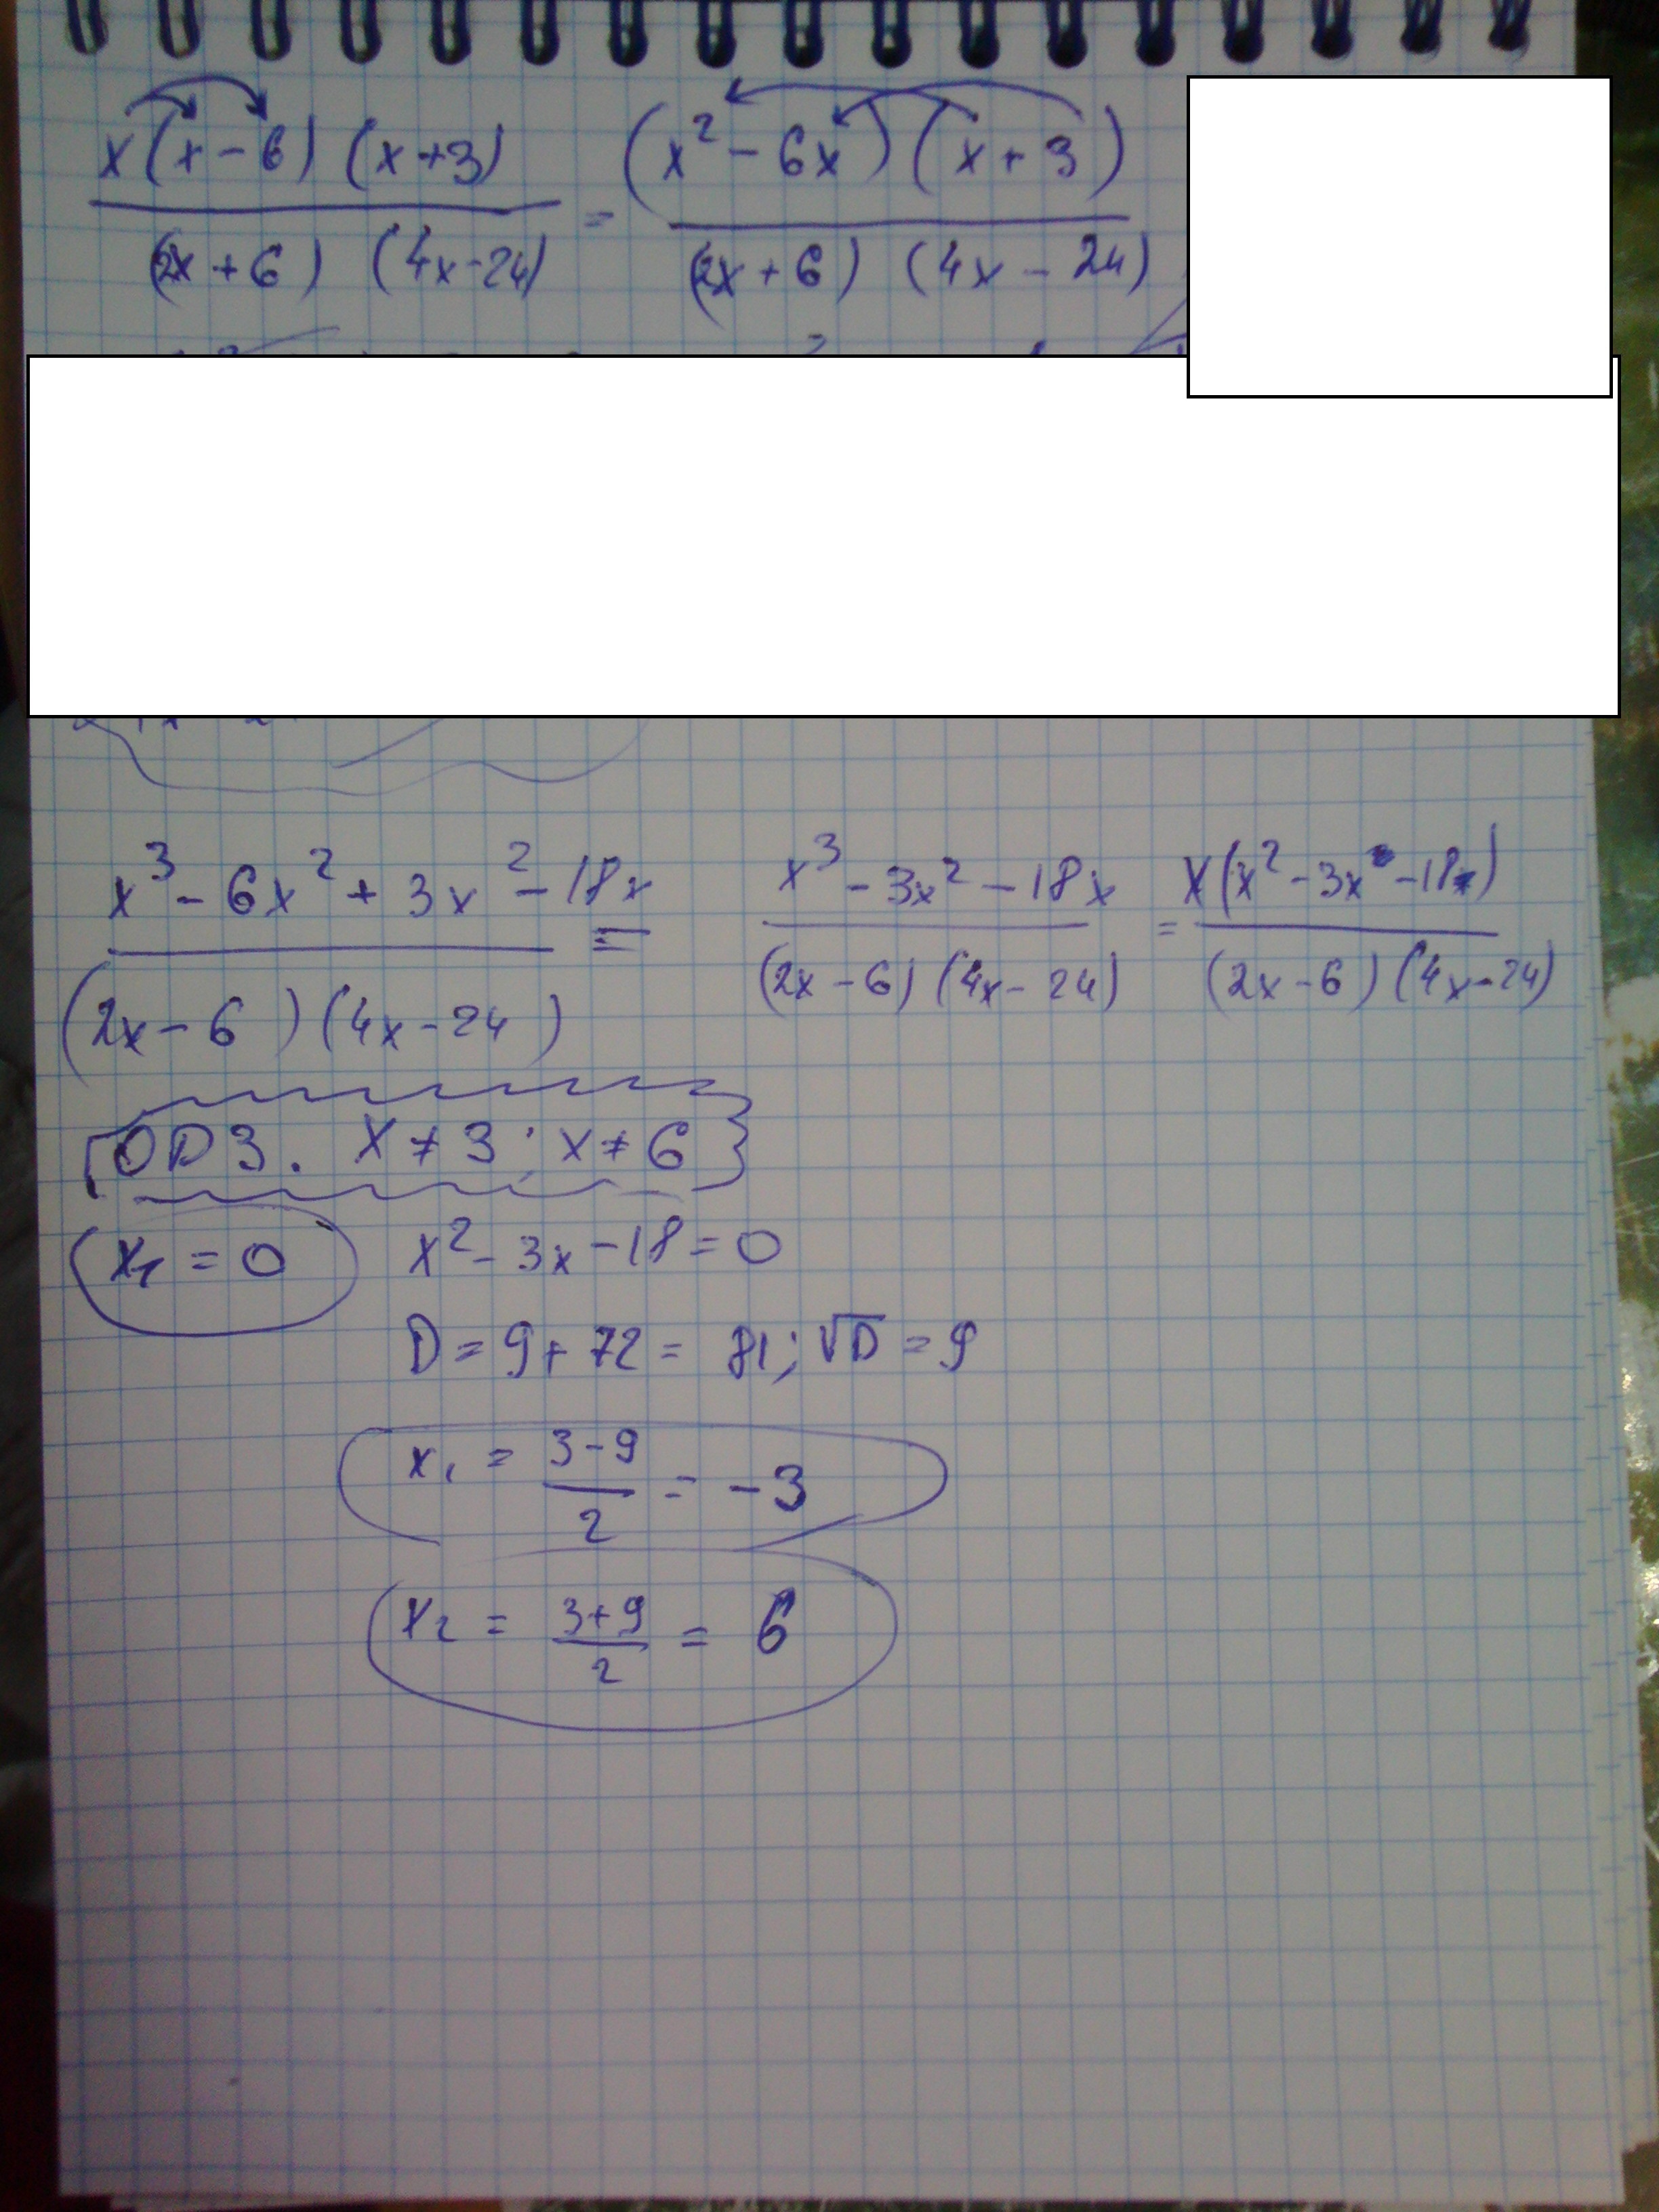 x(x-6)(x+3) / (2x+6)(4x-24) = (x²-6x)(x+3) / (2x+6)(4x-24)
x³-6x²+3x²-18x / (2x-6)(4x-24) = x³-3x²-18x / (2x-6)(4x-24) = x(x²-3x-18) / (2x-6)(4x-24)
ОДЗ. x≠3; x≠6
x₁=0 x²-3x-18=0
D=9+72=81; √D=9
x₁ = 3-9 / 2 = -3
x₂ = 3+9 / 2 = 6